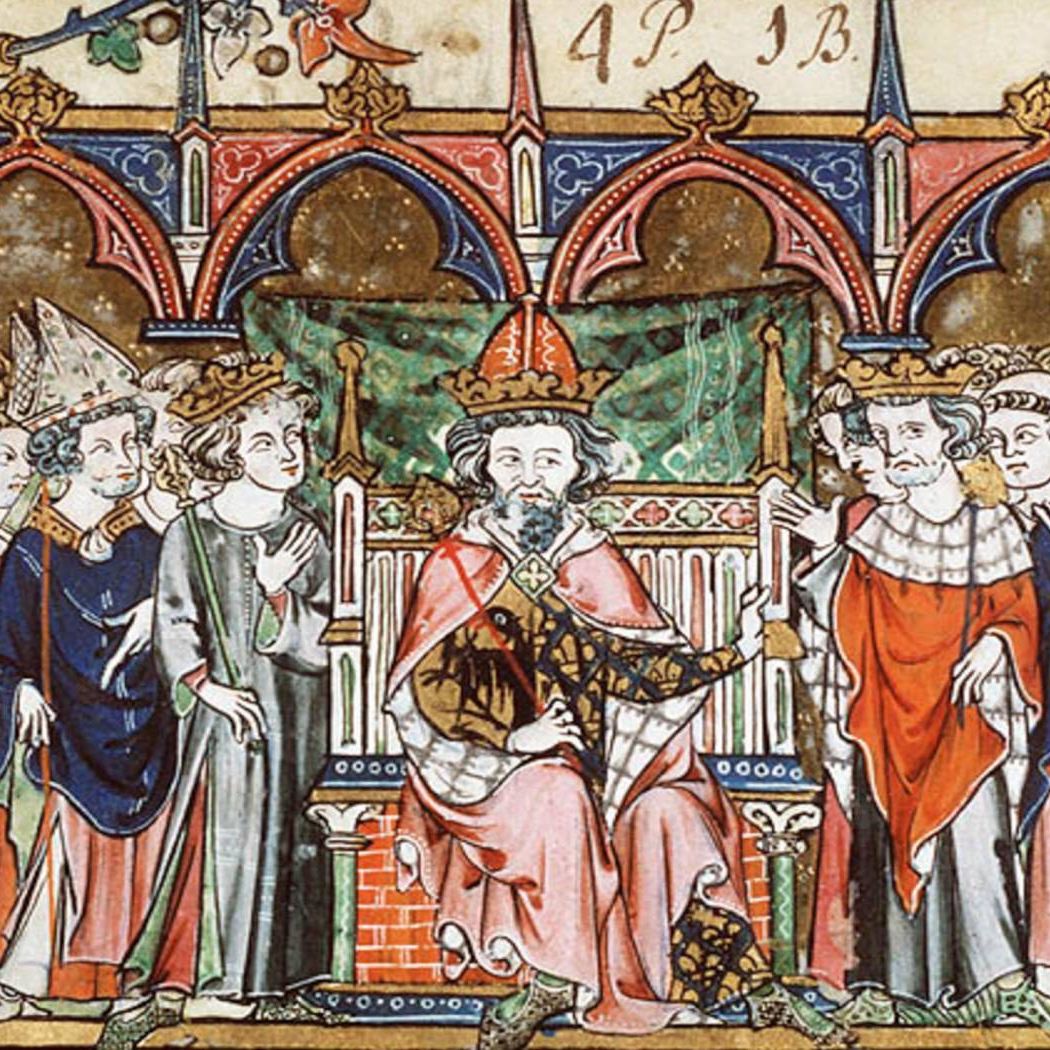 4 P. 1 B.